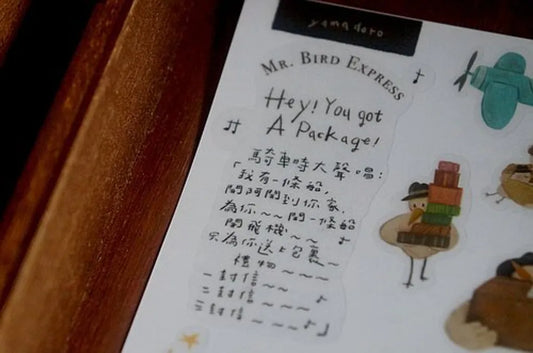 yamadoro
MR. BIRD EXPRESS
Hey! You got
A Package!
騎車時大聲唱:
「我有一條船,
開阿開到你家,
為你~~開一條船
開飛機~~♪
只為你送上包裹~
禮物~~~
一封信~~
二封信~~~♪
三封信~~~♪」